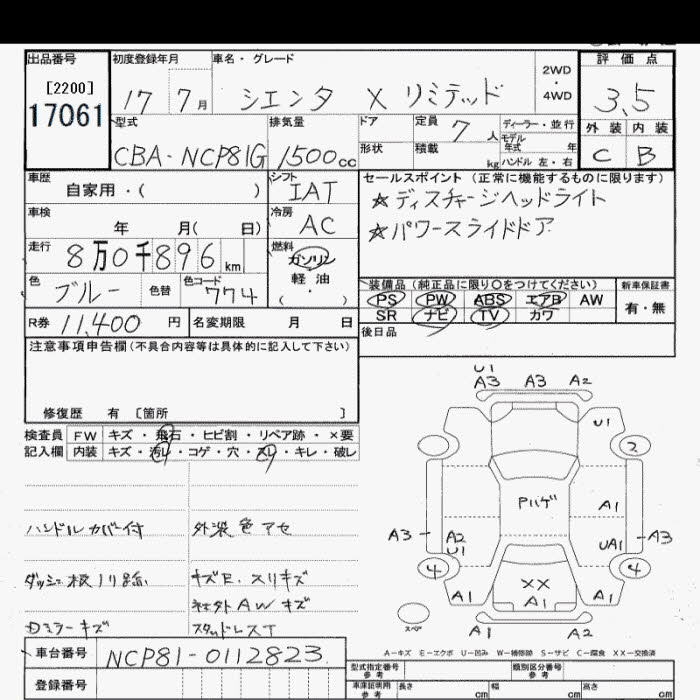 出品番号
[2200]
17061
初度登録年月
17 7月
車名・グレード
シエンタ X リミテッド
2WD
・
4WD
評価点
3.5
外装 内装
C B
型式
CBA-NCP81G
排気量
1500cc
ドア
形状
定員 7人
積載 kg
ディーラー・並行
モデル年式 年
ハンドル 左・右
車歴
自家用・( )
シフト
IAT
車検
年 月( 日)
冷房
AC
走行
8万0千896km
燃料
ガソリン
軽油
( ・ )
色
ブルー
色替
色コード
774
R券 11,400 円
名変期限 月 日
セールスポイント (正常に機能するものに限ります)
☆ディスチャージヘッドライト
☆パワースライドドア
装備品 (純正品に限り○をつけてください)
PS PW ABS エアB AW
SR ナビ TV カワ
新車保証書
有・無
後日品
注意事項申告欄(不具合内容等は具体的に記入して下さい)
修復歴 有 [箇所 ]
検査員記入欄
FW キズ・飛石・ヒビ割・リペア跡・×要
内装 キズ・汚レ・コゲ・穴・スレ・キレ・破レ
ハンドルカバー付
外装色アセ
ダッシュ板ノリ跡
キズE.スリキズ
社外AWキズ
Dミラーキズ
スタッドレスT
U1
A3 A3 A2
U1
2
Pハゲ
A1
A3
A2
U1
UA1
A3
4
4
XX
A1
A1
A1
スペア
A1
A2
A-キズ E-エクボ U-凹み W-補修跡 S-サビ C-腐食 XX-交換済
車台番号 NCP81-0112823
登録番号
型式指定番号
参考
類別区分番号
参考
車庫証明用
参考
長さ cm
幅 cm
高さ cm